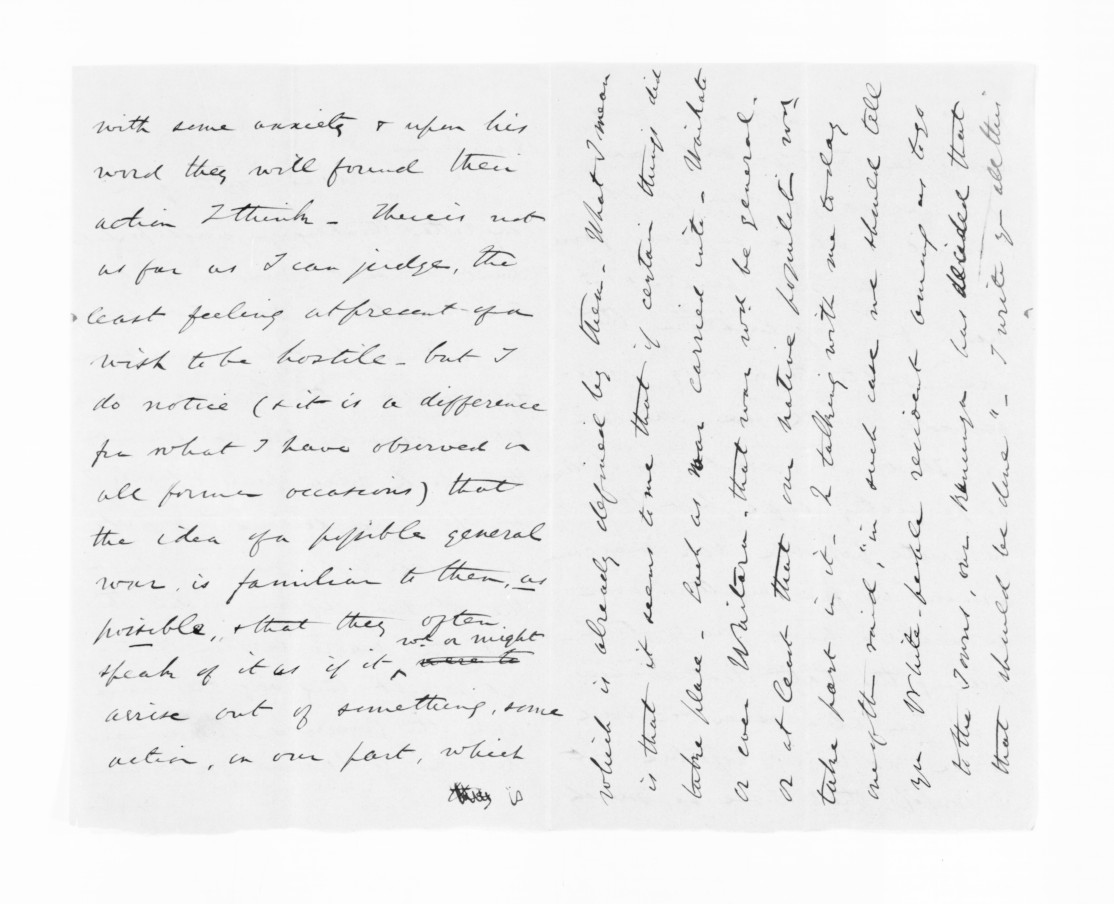 with some anxiety & upon his
word they will found their
action I think - there is not
as far as I can judge, the
least feeling at present of a
wish to be hostile - but I
do notice (& it is a difference
fr what I have observed on
all former occasions) that
the idea of a possible general
war, is familiar to them, as
possible, & that they often
wd or might
speak of it as if it were to
arise out of something, some
action, on our part, which
they is
which is already defined by them - What I mean
is that it seems to me that if certain things did
take place - such as war carried into - Waikato
or even Waitara - that war wod be general -
or at least that our native population wod
take part in it - In talking with me today
one of th said, "in such case we should tell
you White people resident among us to go
to the Towns, our has decided that
that should be done" - I write yo all this